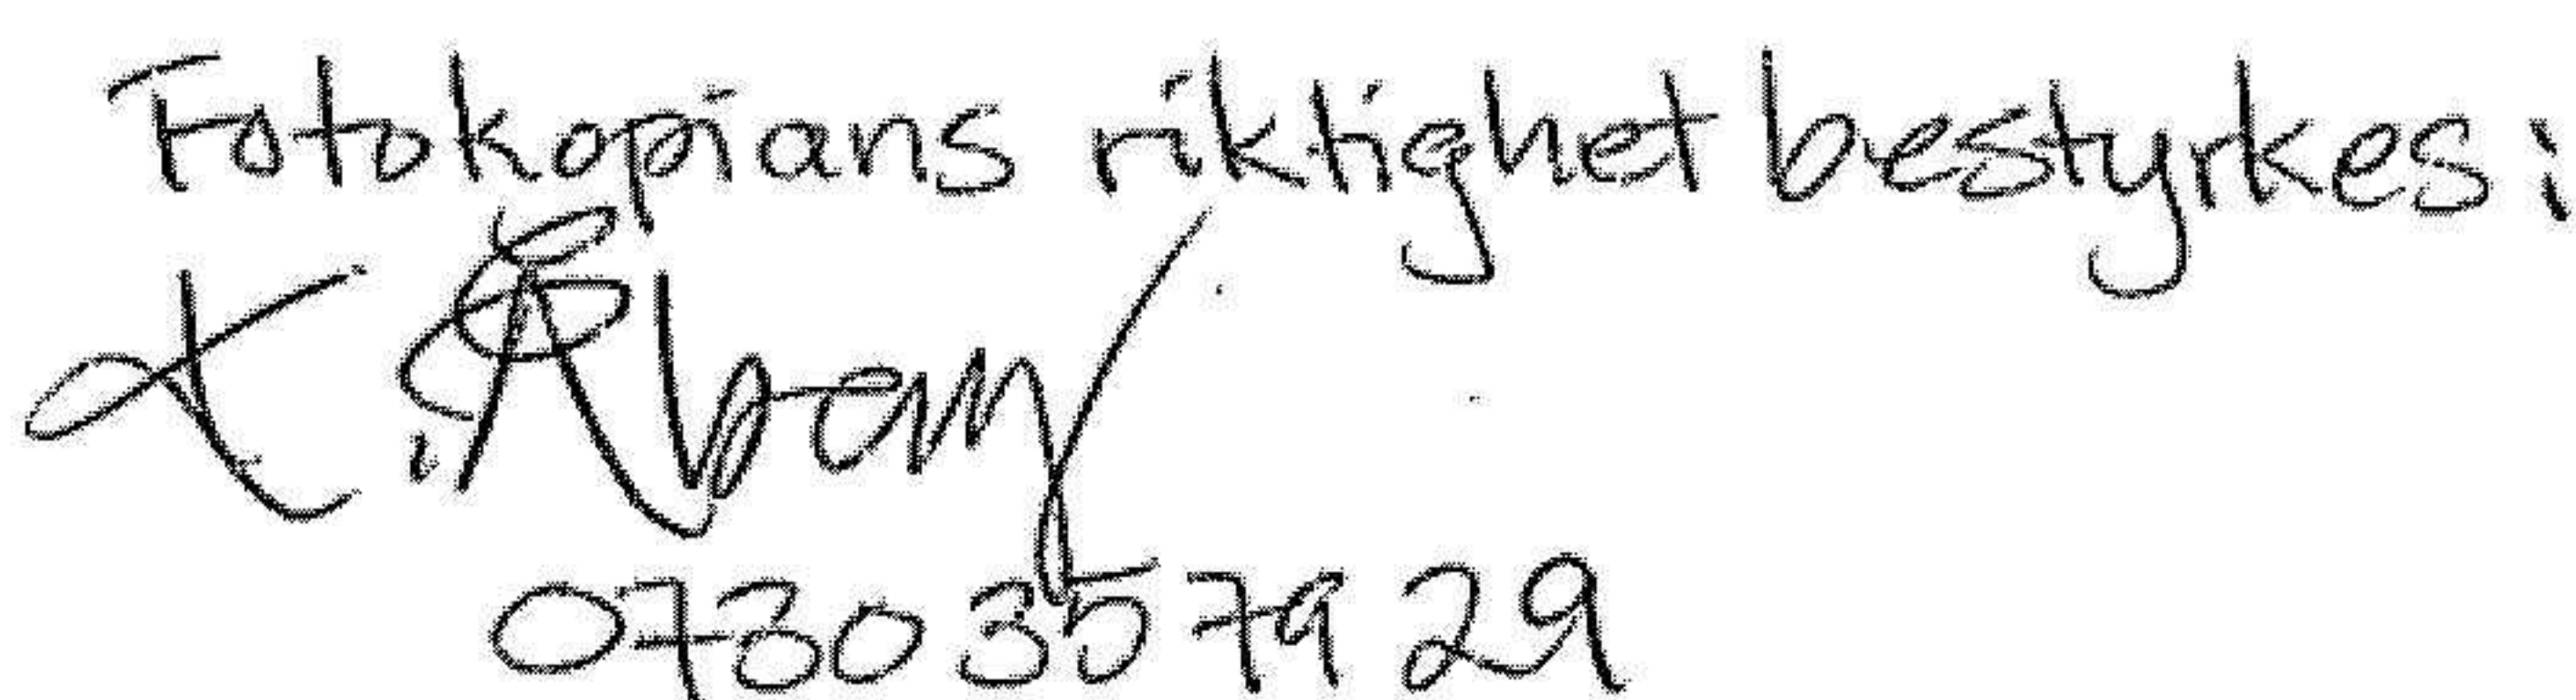 Fotokopians riktighet bestyrkes:
0730 35 79 29